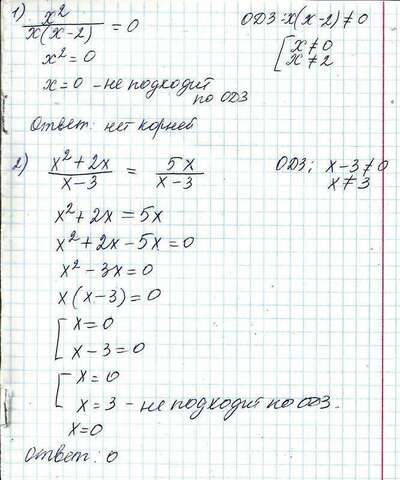 1) x²/x(x-2) = 0   ОДЗ: x(x-2) ≠ 0
x² = 0   [ x ≠ 0
x ≠ 2
x = 0 - не подходит
по ОДЗ
Ответ: нет корней
2) x² + 2x/x-3 = 5x/x-3   ОДЗ; x-3 ≠ 0
x ≠ 3
x² + 2x = 5x
x² + 2x - 5x = 0
x² - 3x = 0
x(x-3) = 0
[ x = 0
x - 3 = 0
[ x = 0
x = 3 - не подходит по ОДЗ.
x = 0
Ответ: 0